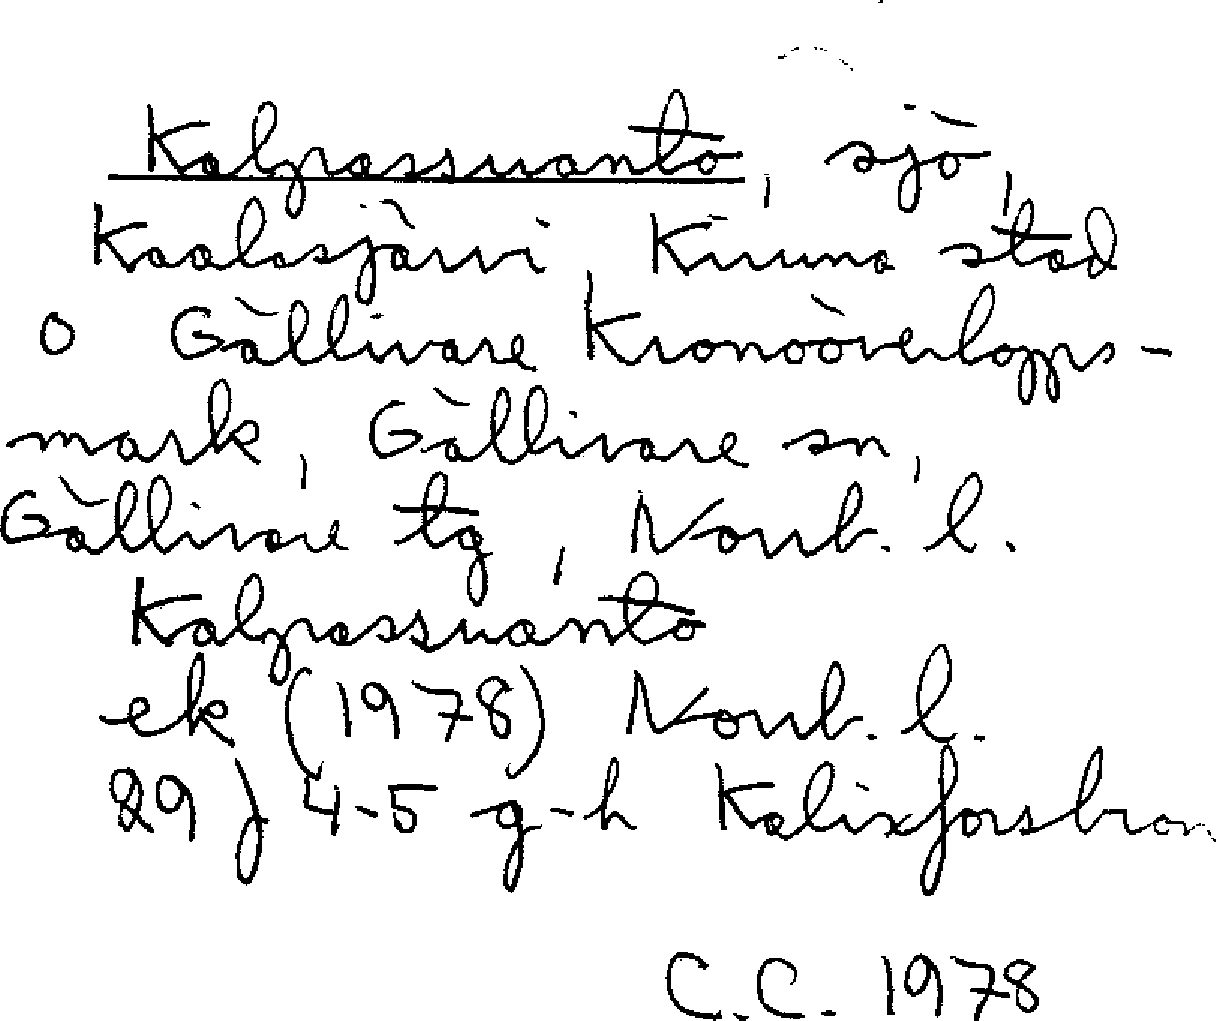 Kalpassuanto, sjö,
Kaalasjärvi, Kiruna stad
o Gällivare Kronoöverlopps-
mark, Gällivare sn,
Gällivare tg, Norrb. l.
Kalpassuanto
ek (1978) Norrb. l.
29 J 4-5 g-h Kalixforsbron
C.C. 1978